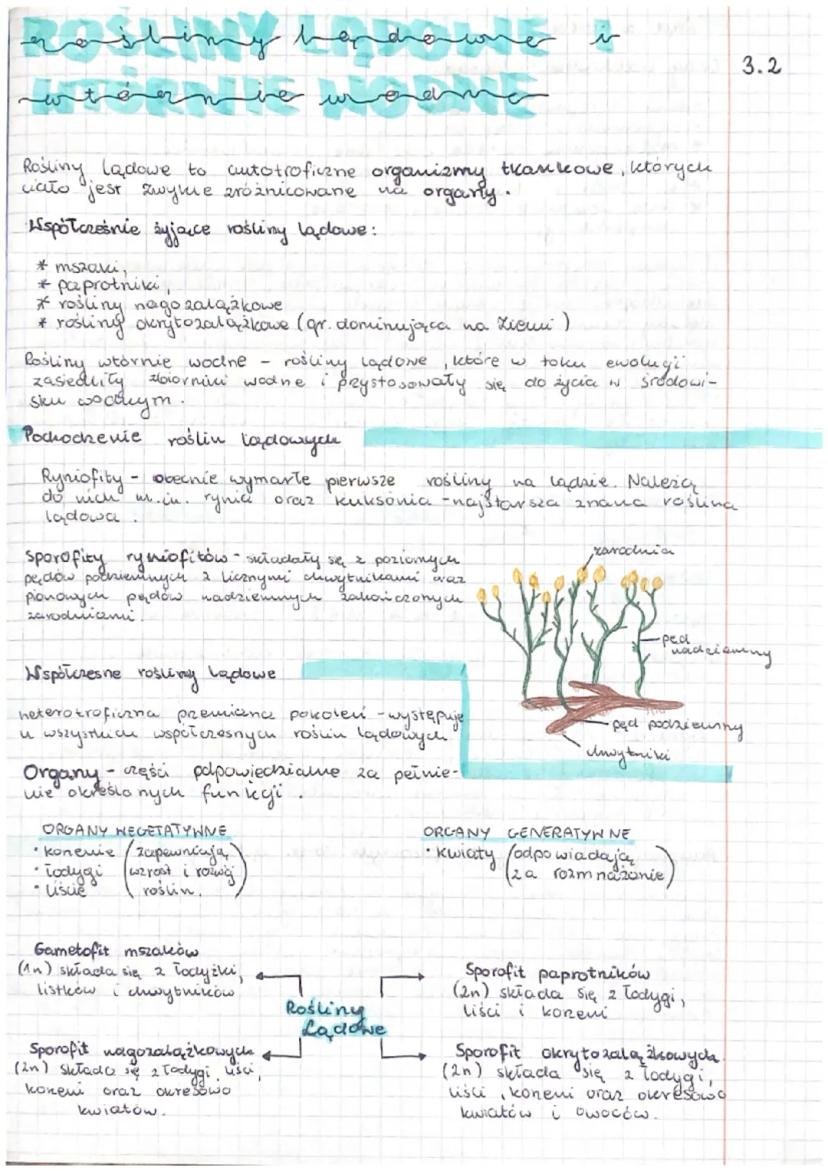 rośliny lądowe i
wtórnie wodne
3.2
Rośliny lądowe to autotroficzne organizmy tkankowe, których
ciało jest zwykle zróżnicowane na organy.
Współcześnie żyjące rośliny lądowe:
* mszaki,
* paprotniki,
* rośliny nagozalążkowe
* rośliny okrytozalążkowe (gr. dominująca na Ziemi)
Rośliny wtórnie wodne - rośliny lądowe, które w toku ewolucji
zasiedliły zbiorniki wodne i przystosowały się do życia w środowi-
sku wodnym.
Pochodzenie roślin lądowych
Ryniofity - obecnie wymarłe pierwsze rośliny na lądzie. Należą
do nich m.in. rynia oraz kuksonia - najstarsza znana roślina
lądowa.
Sporofity ryniofitów - składały się z poziomych
pędów podziemnych z licznymi chwytnikami oraz
pionowych pędów nadziemnych zakończonych
zarodniami.
zarodnia
pęd
nadziemny
pęd podziemny
chwytniki
Współczesne rośliny lądowe
heterotroficzna przemiana pokoleń - występuje
u wszystkich współczesnych roślin lądowych
Organy - części odpowiedzialne za pełnie-
nie określonych funkcji.
ORGANY WEGETATYWNE
• korzenie (zapewniają
• łodygi wzrost i rozwój
• liście roślin.)
ORGANY GENERATYWNE
• kwiaty (odpowiadają
za rozmnażanie)
Gametofit mszaków
(1n) składa się z łodyżki,
listków i chwytników
Sporofit paprotników
(2n) składa się z łodygi,
liści i korzeni
Rośliny
Lądowe
Sporofit nagozalążkowych
(2n) składa się z łodygi, liści,
korzeni oraz okresowo
kwiatów.
Sporofit okrytozalążkowych
(2n) składa się z łodygi,
liści, korzeni oraz okresowo
kwiatów i owoców.